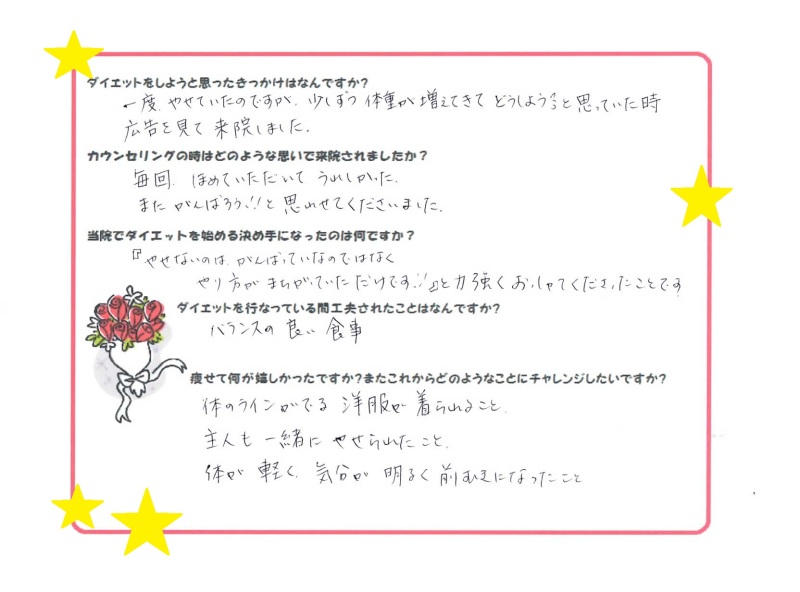 ダイエットをしようと思ったきっかけはなんですか？
一度、やせていたのですが、少しずつ 体重が 増えてきて どうしようろと 思っていた時
広告を見て 来院しました。
カウンセリングの時はどのような思いで来院されましたか？
毎回、ほめていただいて うれしかった。
また がんばろう!!と 思わせてくださいました。
当院でダイエットを始める決め手になったのは何ですか？
『やせないのは、がんばっていないのではなく
やり方が まちがっていた だけです!!』と力強く おっしゃてくださったことです
ダイエットを行なっている間工夫されたことはなんですか？
バランスの 良い 食事
痩せて何が嬉しかったですか？またこれからどのようなことにチャレンジしたいですか？
体のラインがでる 洋服が 着られること。
主人も 一緒に やせられたこと。
体が 軽く、気分が 明るく 前むきになったこと